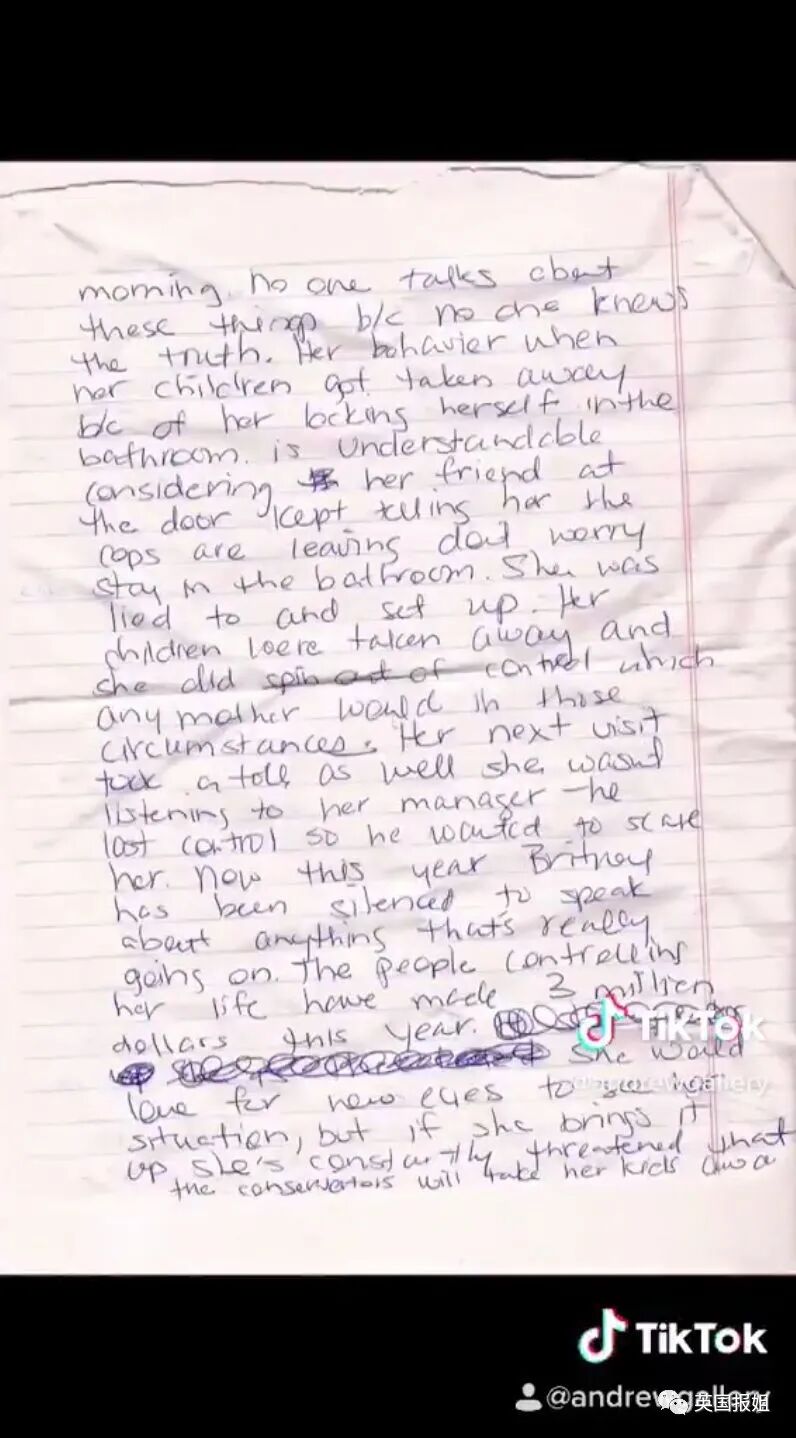 morning. no one talks about
these things b/c no one knews
the truth. Her bohavier when
her children got taken away
b/c of her locking herself in the
bathroom. is understandable
considering her friend at
the door kept telling her the
cops are leaving dont worry
stay in the bathroom. She was
lied to and set up. Her
children were taken away and
she did spin out of control which
any mother would in those
circumstances. Her next visit
took a toll as well she wasnt
listening to her manager - he
lost control so he wanted to scare
her. Now this year Britney
has been silenced to speak
about anything that's really
going on. The people controlling
her life have made 3 million
dollars this year.
She would
love for new eyes to see her
situation, but if she brings it
up she's constantly threatened that
the conservators will take her kids awa
TikTok
@andrewgallery
TikTok
@andrewgallery
英国报姐